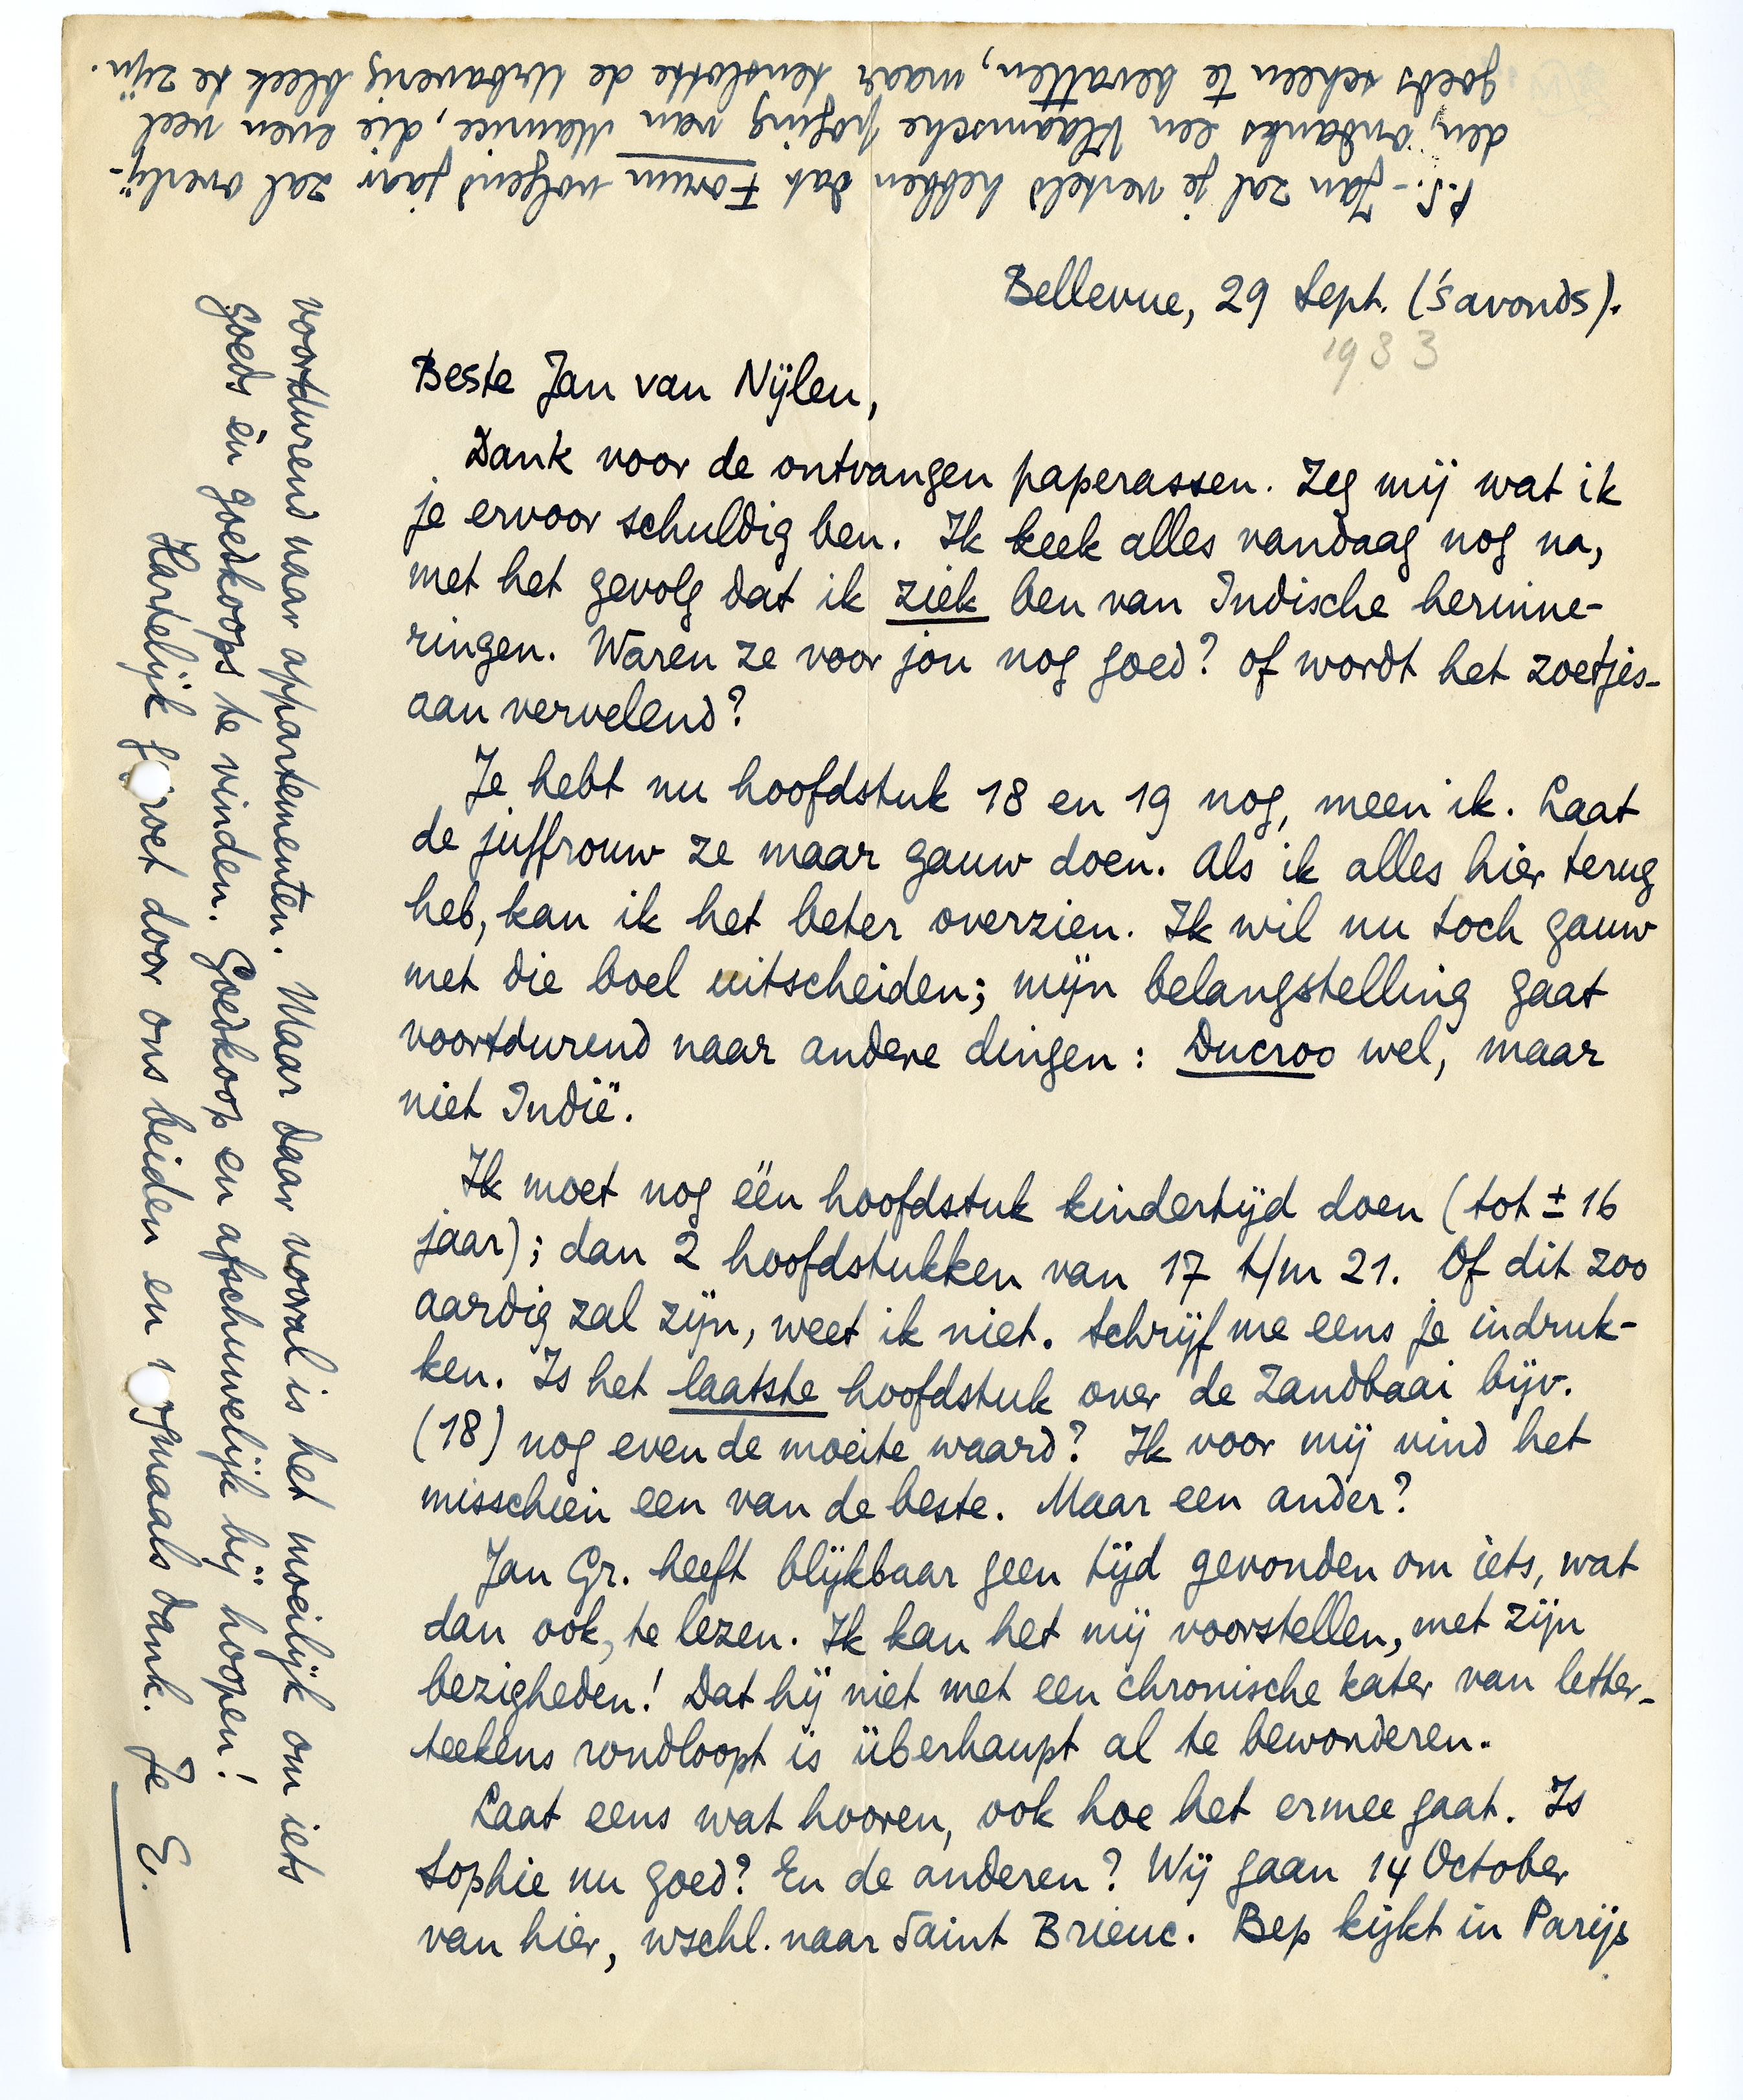 Bellevue, 29 Sept. ('s avonds).
1933
Beste Jan van Nijlen,
Dank voor de ontvangen paperassen. Zeg mij wat ik
je ervoor schuldig ben. Ik keek alles vandaag nog na,
met het gevolg dat ik ziek ben van Indische herinne-
ringen. Waren ze voor jou nog goed? of wordt het zoetjes-
aan vervelend?
Je hebt nu hoofdstuk 18 en 19 nog, meen ik. Laat
de juffrouw ze maar gauw doen. Als ik alles hier terug
heb, kan ik het beter overzien. Ik wil nu toch gauw
met die boel uitscheiden; mijn belangstelling gaat
voortdurend naar andere dingen: Ducroo wel, maar
niet Indië.
Ik moet nog één hoofdstuk kindertijd doen (tot ± 16
jaar); dan 2 hoofdstukken van 17 t/m 21. Of dit zoo
aardig zal zijn, weet ik niet. Schrijf me eens je indruk-
ken. Is het laatste hoofdstuk over de Zandbaai bijv.
(18) nog even de moeite waard? Ik voor mij vind het
misschien een van de beste. Maar een ander?
Jan Gr. heeft blijkbaar geen tijd gevonden om iets, wat
dan ook, te lezen. Ik kan het mij voorstellen, met zijn
bezigheden! Dat hij niet met een chronische kater van letter-
teekens rondloopt is überhaupt al te bewonderen.
Laat eens wat hooren, ook hoe het ermee gaat. Is
Sophie nu goed? En de anderen? Wij gaan 14 October
van hier, wschl. naar Saint Brieuc. Bep kijkt in Parijs
voortdurend naar appartementen. Maar daar vooral is het moeilijk om iets
goeds èn goedkoops te vinden. Goedkoop en afschuwelijk bij hoopen!
Hartelijk groet door ons beiden en nogmaals dank. Je E.
P.S. - Jan zal je verteld hebben dat Forum volgend jaar zal overlij-
den, ondanks een Vlaamsche poging van Maurice, die even veel
goeds scheen te bevatten, maar tenslotte de Urbaverig bleek te zijn.